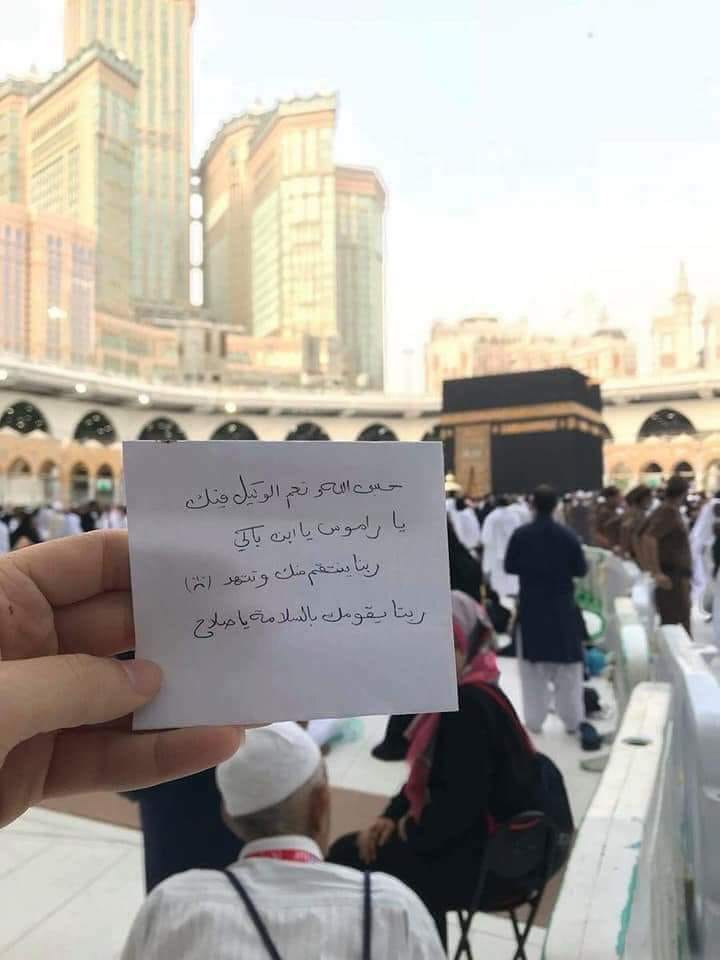 حسبى الله و نعم الوكيل فيك
يا راموس يا ابن باكي
ربنا ينتقم منك وتتهد
ربنا يقومك بالسلامة يا صلاح